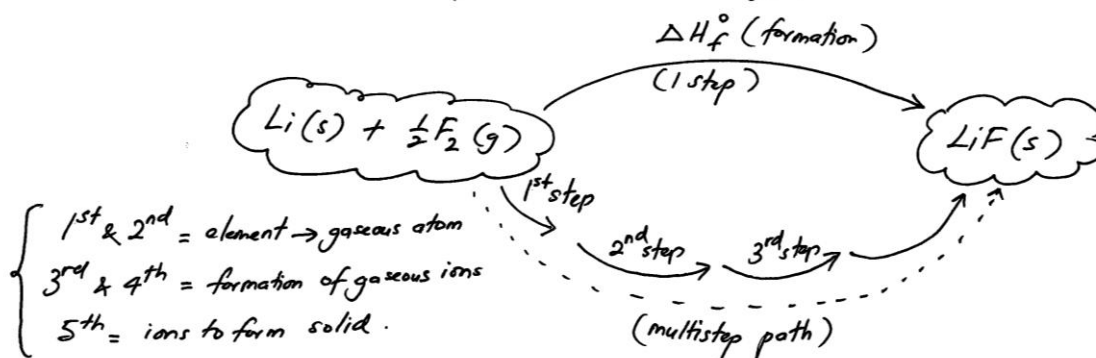 ΔH°f (formation)
(1 step)
Li(s) + ½F₂(g)
LiF(s)
1st step
2nd step
3rd step
(multistep path)
1st & 2nd = element → gaseous atom
3rd & 4th = formation of gaseous ions
5th = ions to form solid.